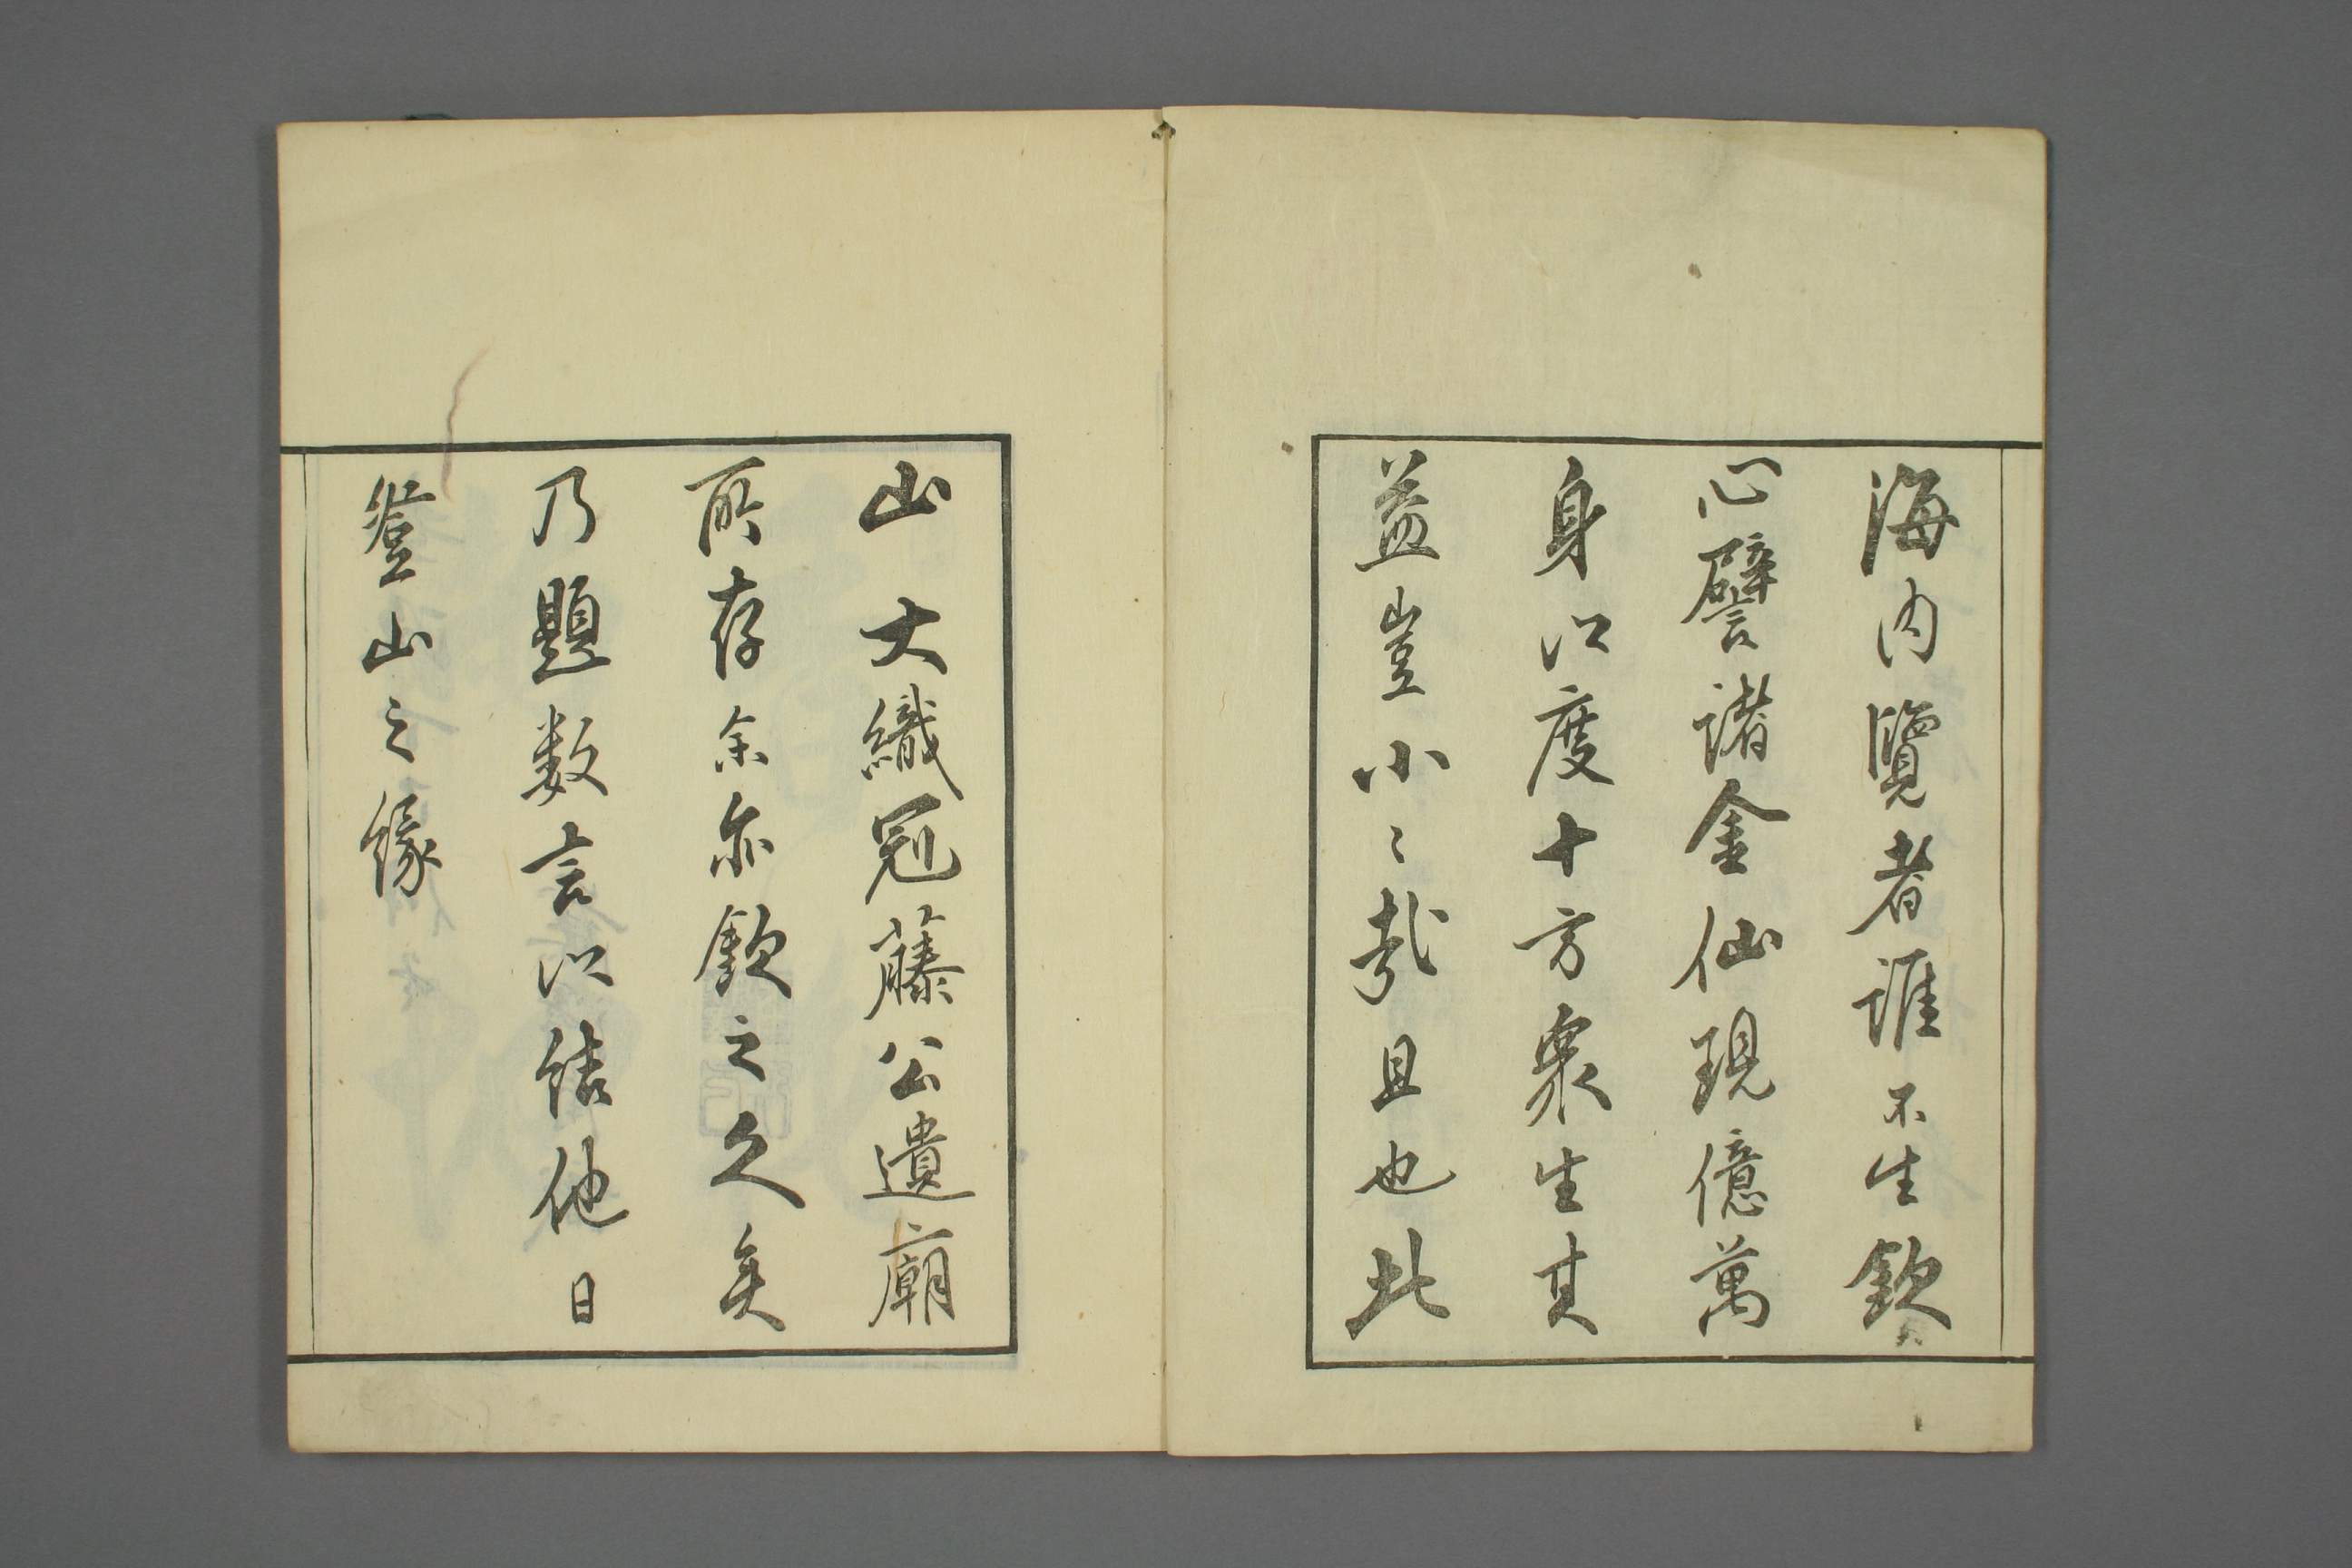 海内覽者誰不生欽
心譬諸金仙現億萬
身以度十方衆生其
益豈小〻哉且也此
山大織冠藤公遺廟
所存余亦欽之久矣
乃題数言以結他日
登山之縁